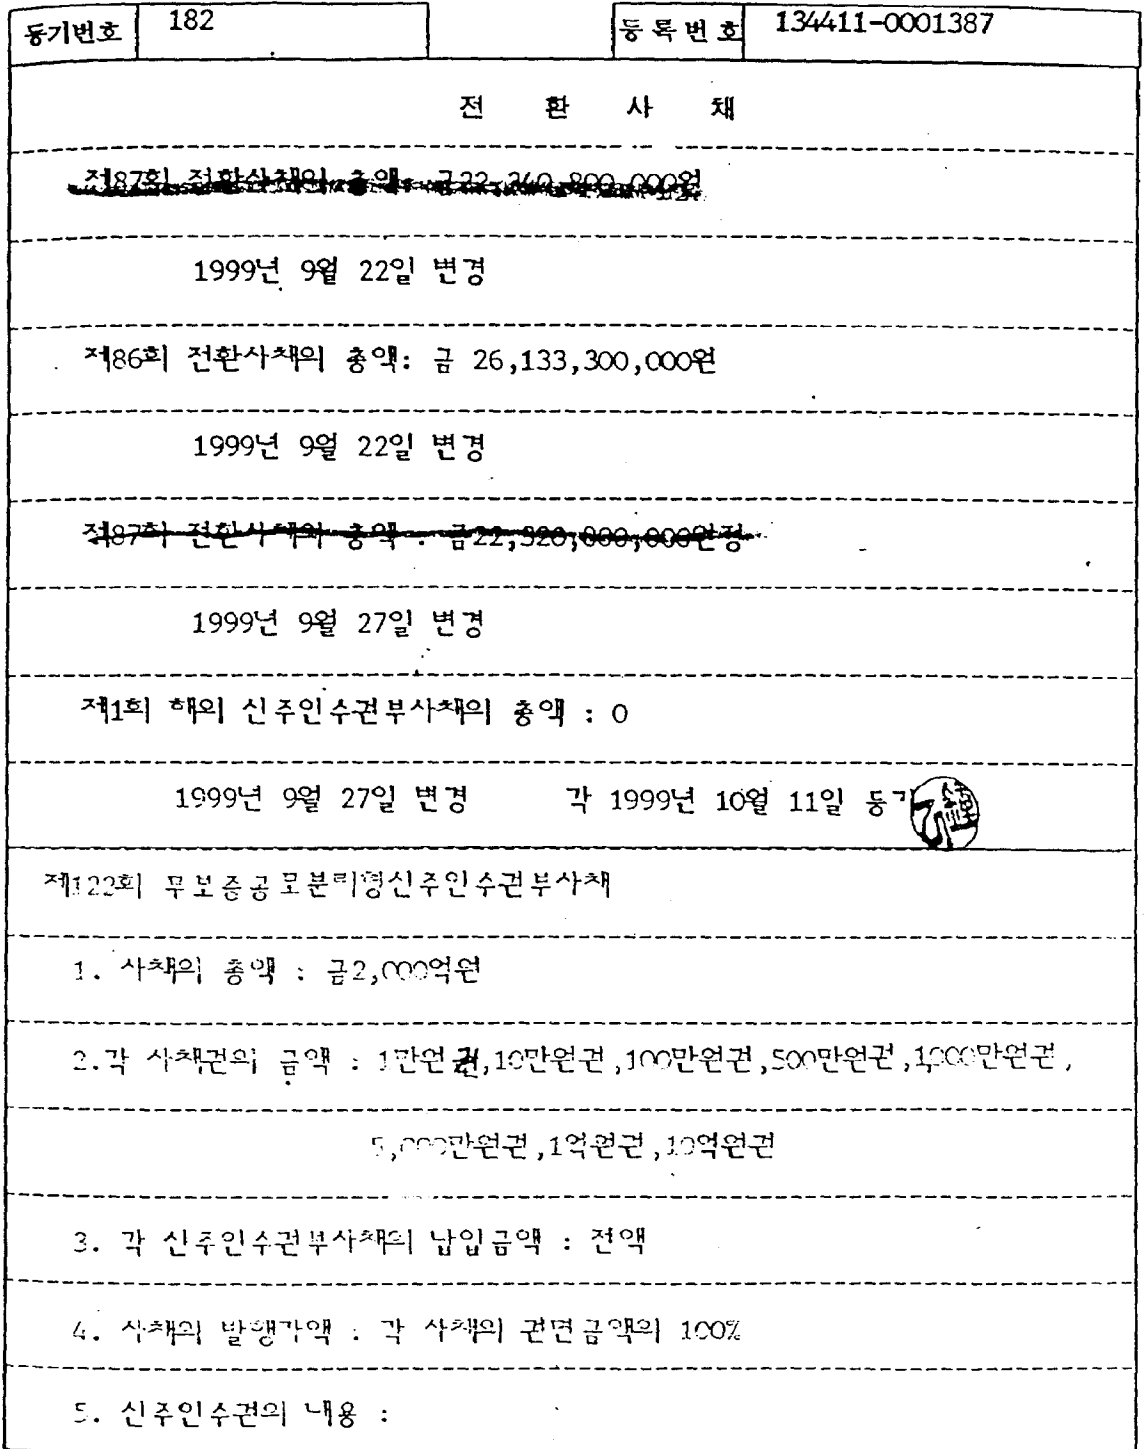 등기번호 182 등록번호 134411-0001387
전 환 사 채
제87회 전환사채의 총액: 금22,340,800,000원
1999년 9월 22일 변경
제86회 전환사채의 총액: 금 26,133,300,000원
1999년 9월 22일 변경
제87회 전환사채의 총액 : 금22,320,800,000원정
1999년 9월 27일 변경
제1회 해외 신주인수권부사채의 총액 : 0
1999년 9월 27일 변경 각 1999년 10월 11일 등기
제122회 무보증공모분리형신주인수권부사채
1. 사채의 총액 : 금2,000억원
2.각 사채권의 금액 : 1만원권,10만원권,100만원권,500만원권,1000만원권,
5,000만원권,1억원권,10억원권
3. 각 신주인수권부사채의 납입금액 : 전액
4. 사채의 발행가액 : 각 사채의 권면금액의 100%
5. 신주인수권의 내용 :